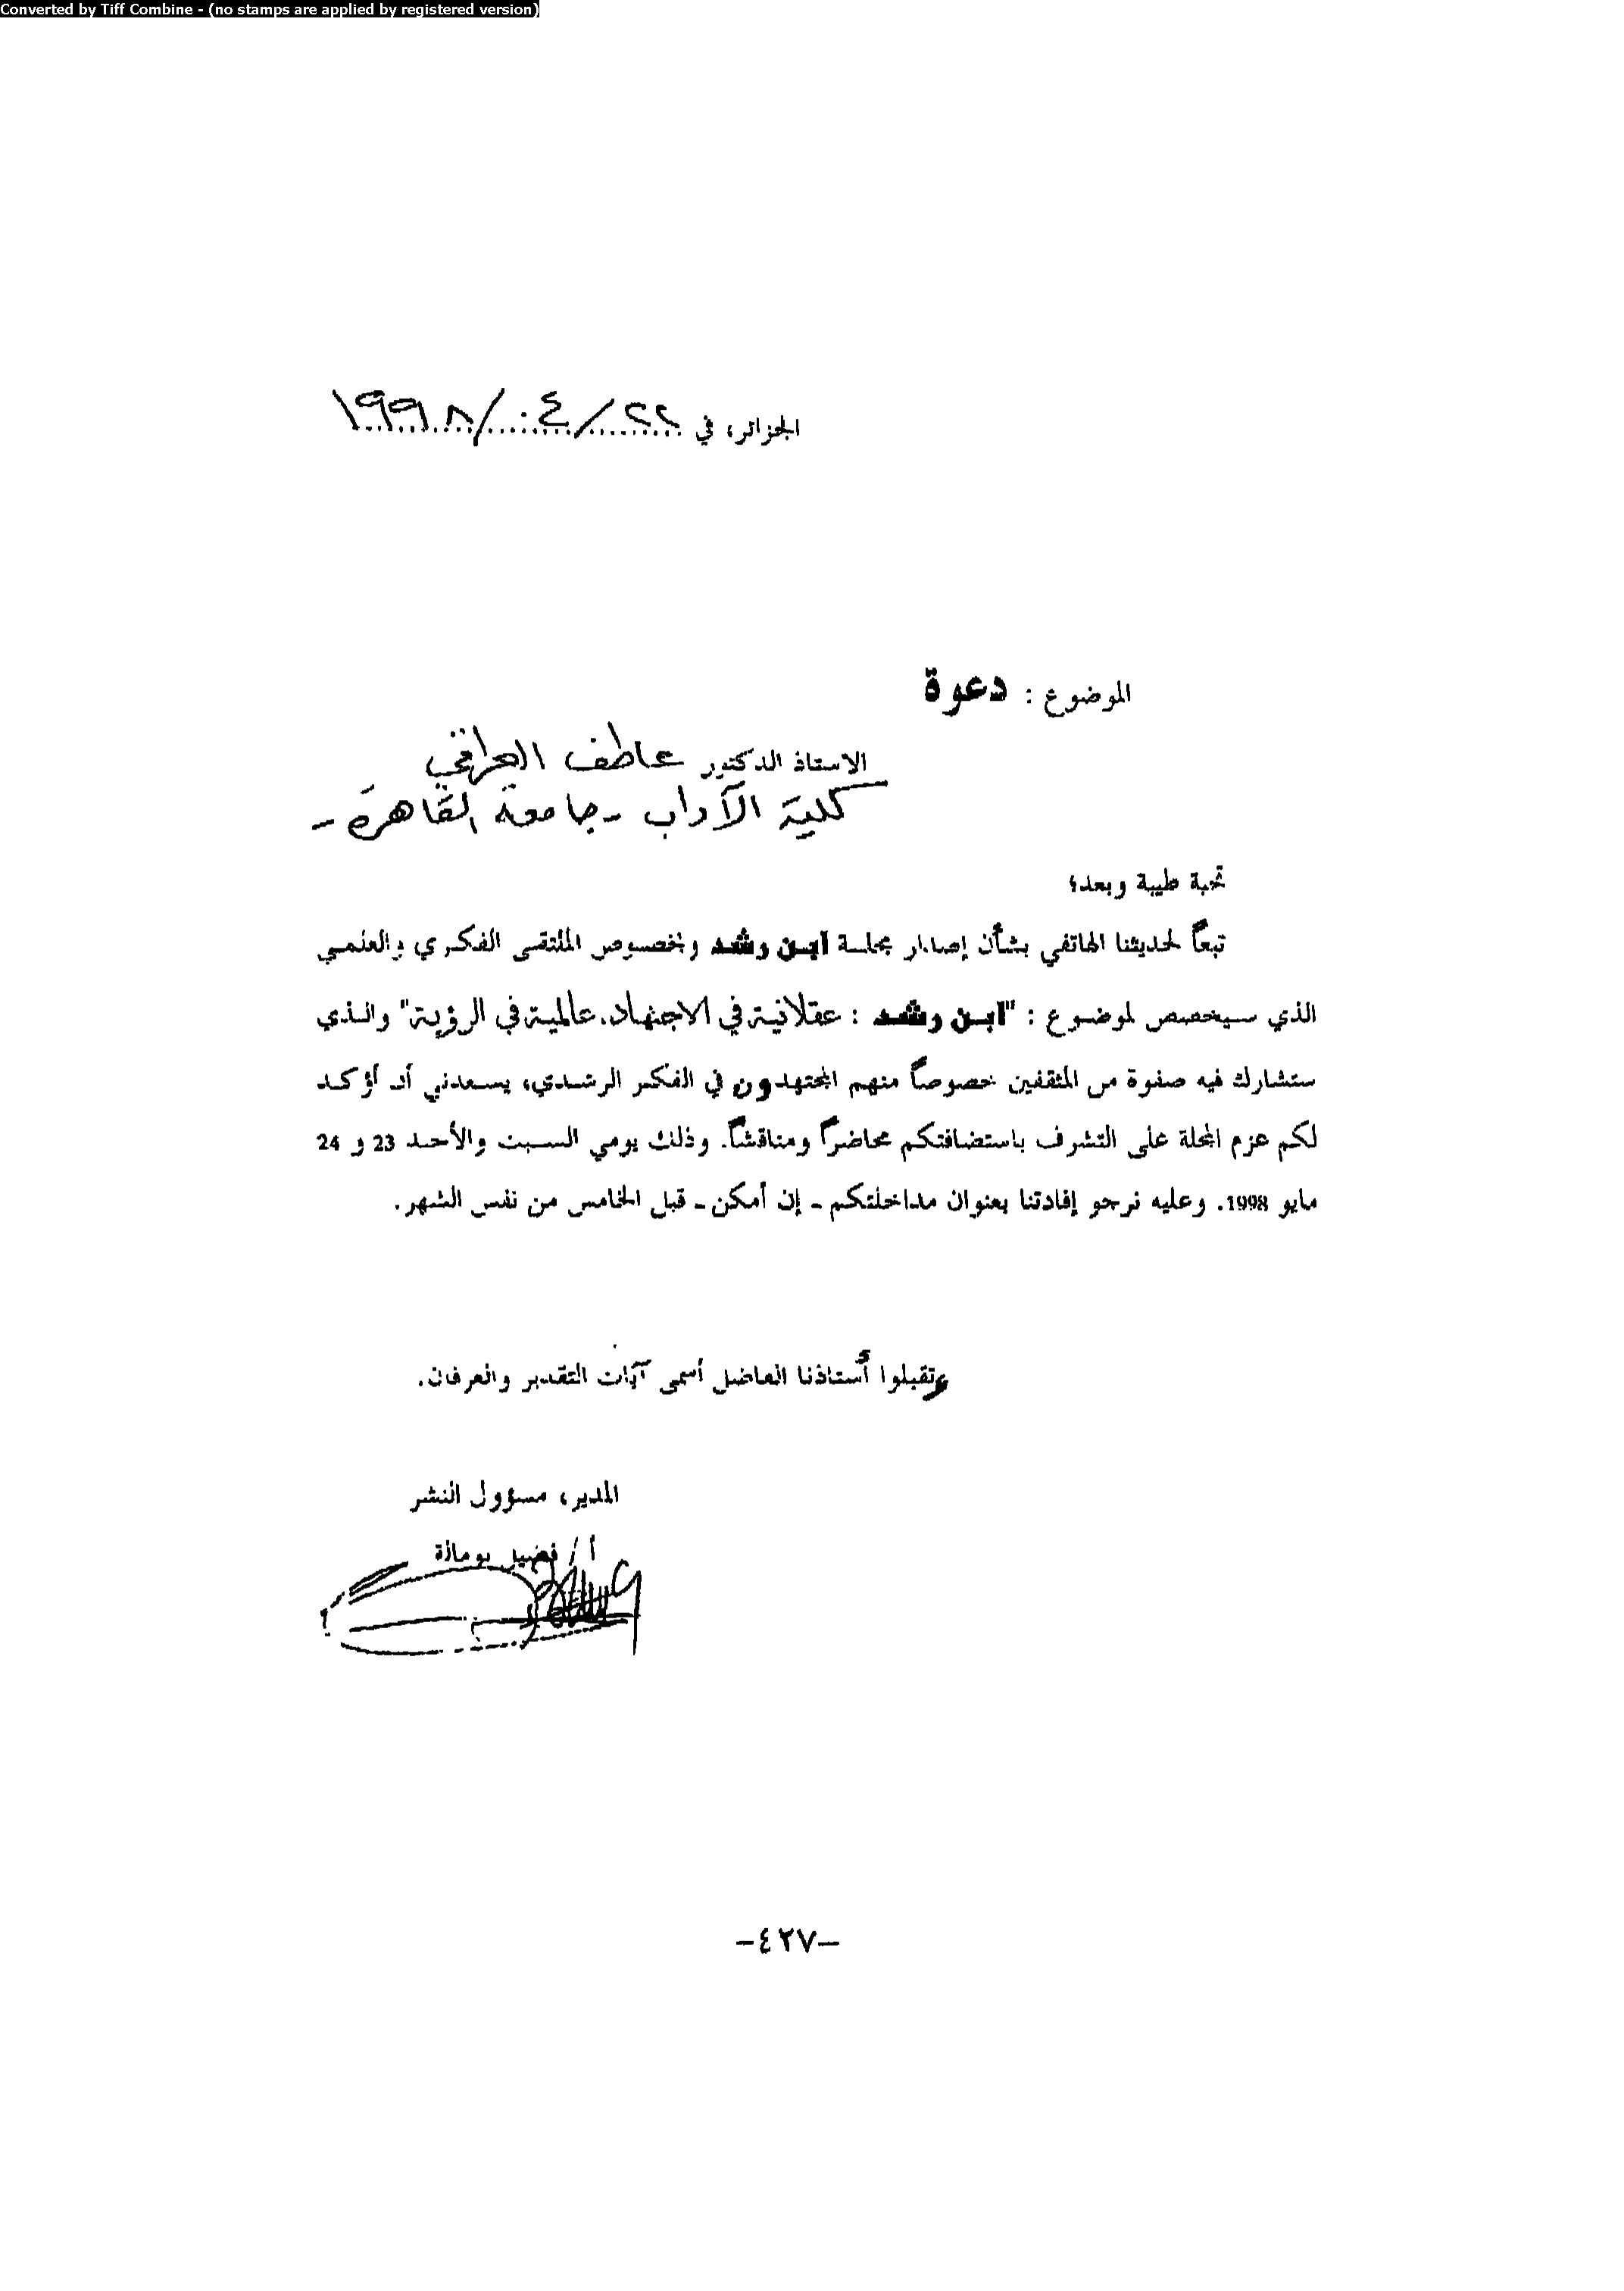 Converted by Tiff Combine - (no stamps are applied by registered version)
الجزائر، في ٢٢/٠٤/١٩٩٨
الموضوع : دعوة
الاستاذ الدكتور عاطف العراقي
كلية الآداب - جامعة القاهرة -
تحية طيبة وبعد؛
تبعاً لحديثنا الهاتفي بشأن إصدار مجلة ابن رشد وبخصوص الملتقى الفكري والعلمي
الذي سيخصص لموضوع : "ابن رشد : عقلانية في الاجتهاد، عالمية في الرؤية" والذي
ستشارك فيه صفوة من المثقفين خصوصاً منهم المجتهدون في الفكر الرشدي، يسعدني أن أؤكد
لكم عزم المجلة على التشرف باستضافتكم محاضراً ومناقشاً. وذلك يومي السبت والأحد 23 و 24
مايو 1998. وعليه نرجو إفادتنا بعنوان مداخلتكم - إن أمكن - قبل الخامس من نفس الشهر.
وتقبلوا أستاذنا الفاضل أسمى آيات التقدير والعرفان.
المدير، مسؤول النشر
أ / فضيل بومالة
-٤٢٧-